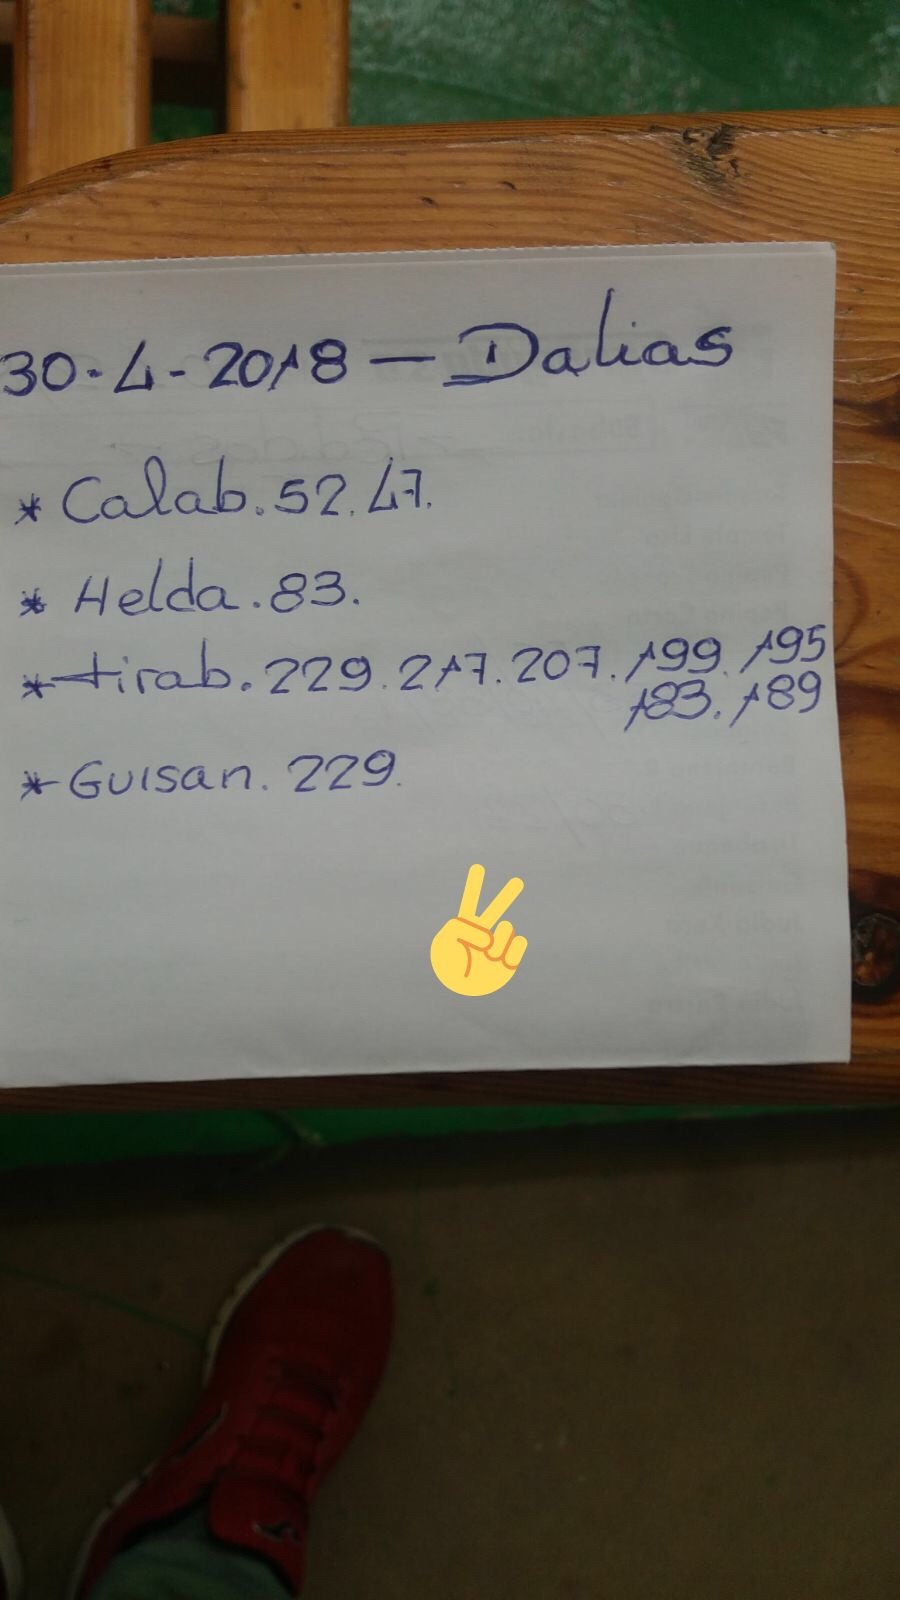 30-4-2018 — Dalias
* Calab. 52. 47.
* Helda. 83.
* tirab. 229. 217. 207. 199. 195
183. 189
* Guisan. 229.